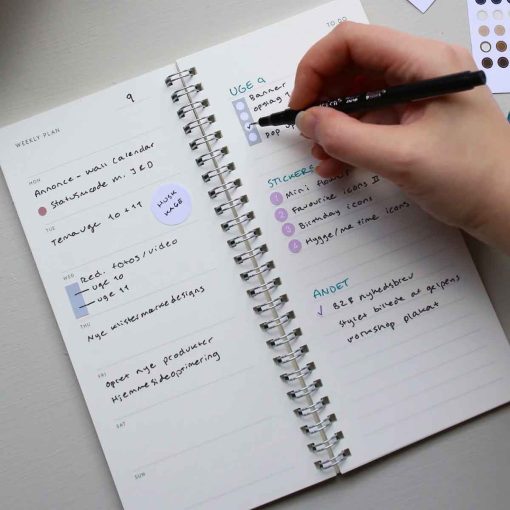 WEEKLY PLAN
9
MON
Annonce - wall calendar
Statusmøde m. J&D
TUE
Temauge 10 + 11
HUSK
KAGE
WED
Red. fotos/video
uge 10
uge 11
THU
Nye klistermærkedesigns
FRI
Opret nye produkter
Hjemmesideoptimering
SAT
SUN
TO DO
UGE 9
Banner
opslag
pop up
STICKERS
1 Mini
2 Favourite icons II
3 Birthday icons
4 Hygge/me time icons
ANDET
B2B nyhedsbrev
Stylet billede af
workshop plakat